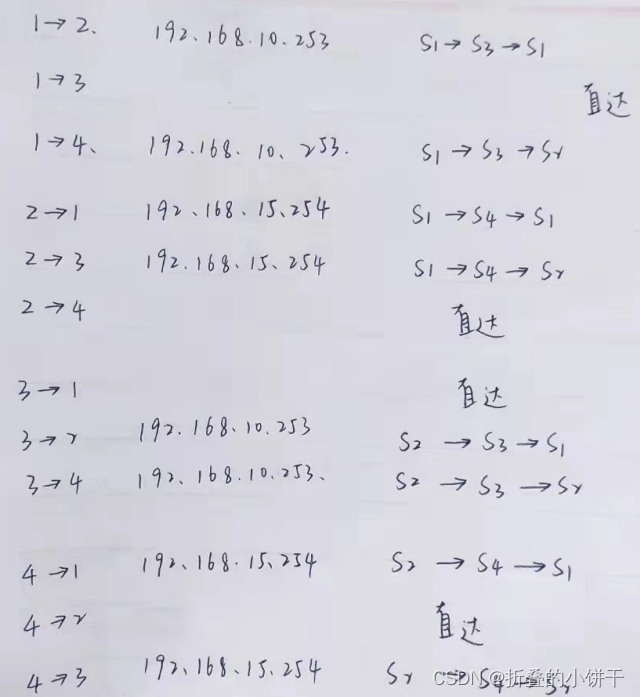 1→2. 192.168.10.253 S1→S3→S1
1→3 直达
1→4、 192.168.10、253. S1→S3→S2
2→1 192、168、15、254 S1→S4→S1
2→3 192.168.15、254 S1→S4→S2
2→4 直达
3→1 直达
3→2 192.168.10.253 S2→S3→S1
3→4 192、168.10.253、 S2→S3→S2
4→1 192、168.15、254 S2→S4→S1
4→2 直达
4→3 192、168.15.254 S2→S4→S2
CSDN @折叠的小饼干